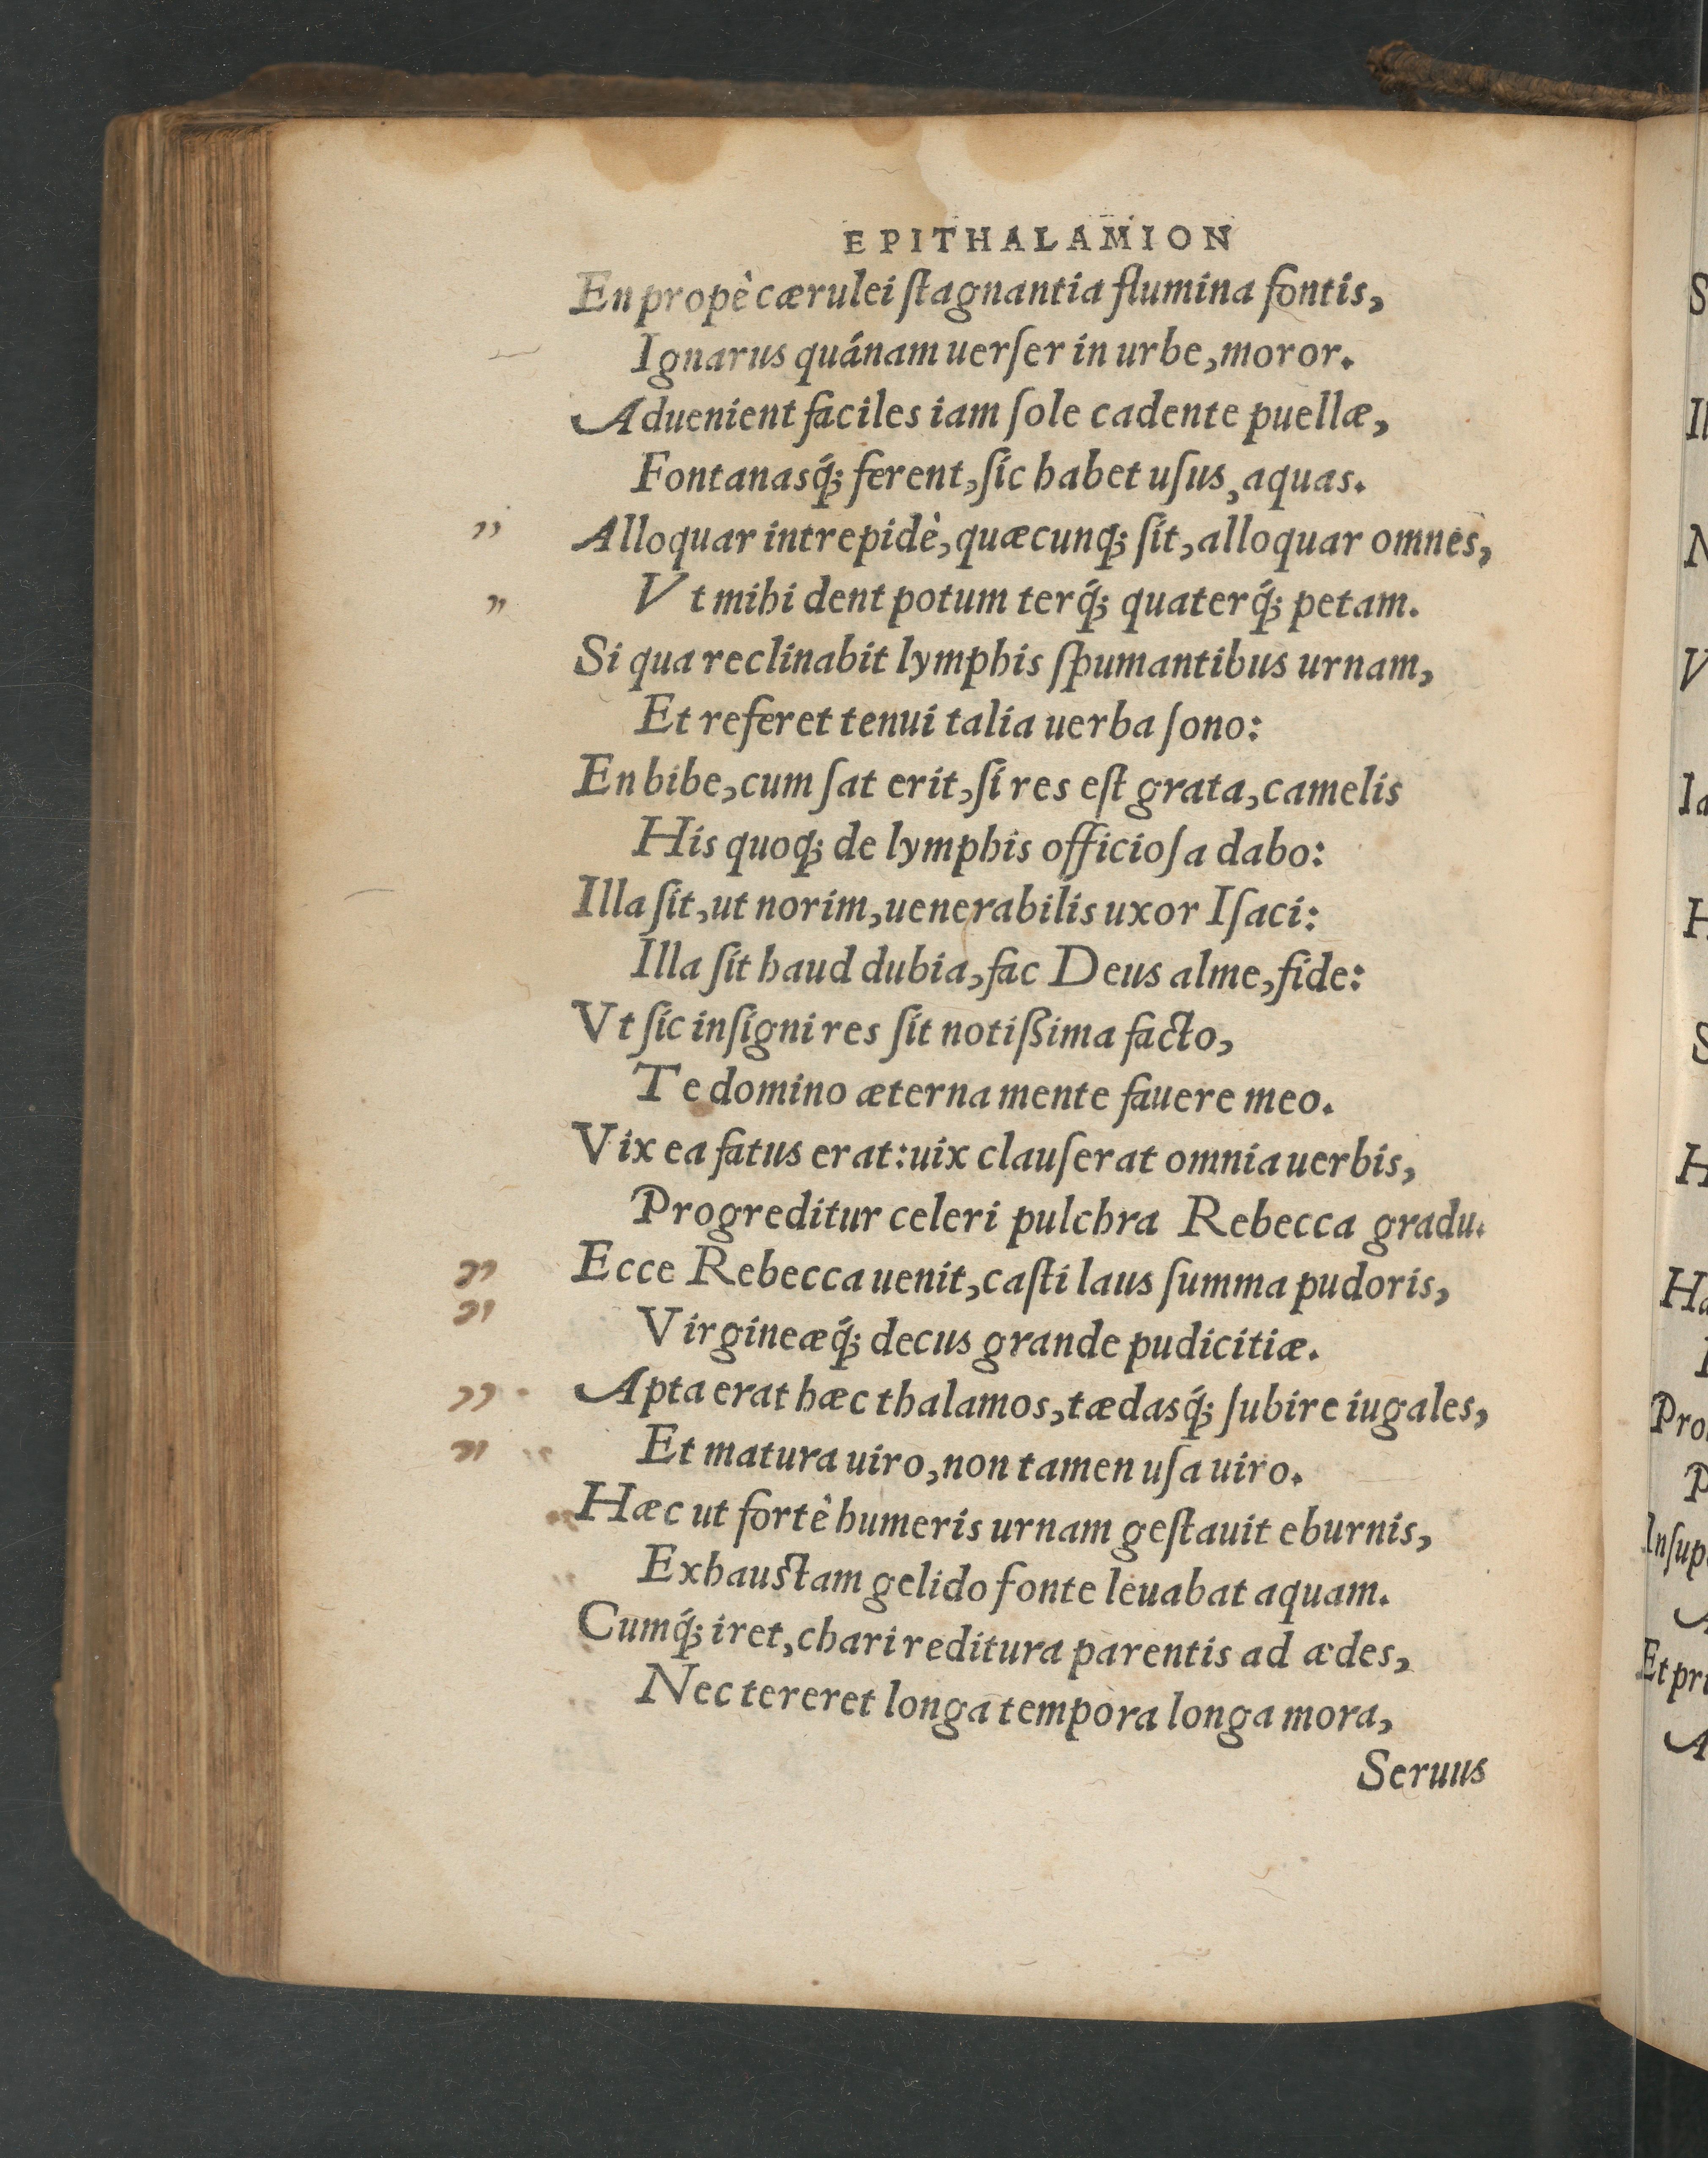 EPITHALAMION
En propè cærulei ſtagnantia flumina fontis,
Ignarus quánam uerſer in urbe, moror.
Aduenient faciles iam ſole cadente puellæ,
Fontanasq́; ferent, ſic habet uſus, aquas.
Alloquar intrepidè, quæcunq; ſit, alloquar omnes,
Vt mihi dent potum terq́; quaterq́; petam.
Si qua reclinabit lymphis ſpumantibus urnam,
Et referet tenui talia uerba ſono:
En bibe, cum ſat erit, ſi res eſt grata, camelis
His quoq; de lymphis officioſa dabo:
Illa ſit, ut norim, uenerabilis uxor Iſaci:
Illa ſit haud dubia, fac Deus alme, fide:
Vt ſic inſigni res ſit notißima facto,
Te domino æterna mente fauere meo.
Vix ea fatus erat: uix clauſerat omnia uerbis,
Progreditur celeri pulchra Rebecca gradu.
Ecce Rebecca uenit, caſti laus ſumma pudoris,
Virgineæq́; decus grande pudicitiæ.
Apta erat hæc thalamos, tædasq́; ſubire iugales,
Et matura uiro, non tamen uſa uiro.
Hæc ut fortè humeris urnam geſtauit eburnis,
Exhauſtam gelido fonte leuabat aquam.
Cumq́; iret, chari reditura parentis ad ædes,
Nec tereret longa tempora longa mora,
Seruus